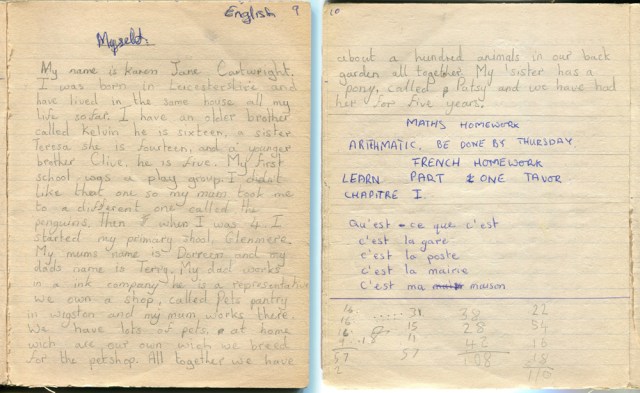 English 9
Myself.
My name is Karen Jane Cartwright.
I was born in Leicestershire and
have lived in the same house all my
life so far. I have an older brother
called Kelvin he is sixteen, a sister
Teresa she is fourteen, and a younger
brother Clive, he is five. My first
school was a play group. I didnt
like that one so my mum took me
to a different one called the
penguins. Then when I was 4 I
started my primary shool, Glenmere.
My mums name is Dorreen and my
dads name is Terry. My dad works
in a ink company he is a representative
We own a shop, called Pets pantry
in wigston and my mum works there.
We have lots of pets, at home
wich are our own wich we breed
for the petshop. All together we have
10
about a hundred animals in our back
garden all together. My sister has a
pony, called Patsy and we have had
her for five years.
MATHS HOMEWORK
ARITHMATIC. BE DONE BY THURSDAY.
FRENCH HOMEWORK
LEARN PART ONE TAVOR
CHAPITRE I.
Qu'est-ce que c'est
c'est la gare
c'est la poste
c'est la mairie
C'est ma maison
16 31 38 22
16 15 28 54
16 11 42
57 57 108